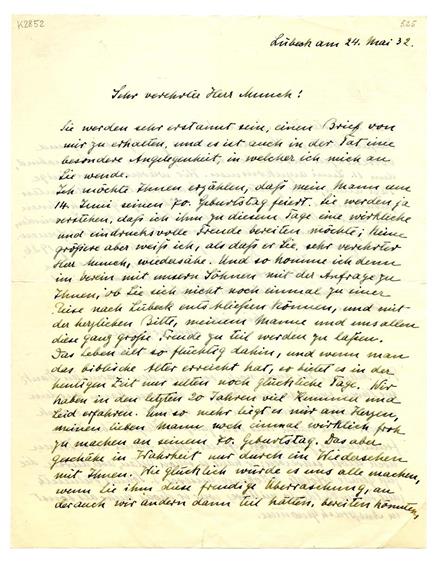 K2852
525
Lübeck am 24. Mai 32.
Sehr verehrter Herr Munch!
Sie werden sehr erstaunt sein, einen Brief von
mir zu erhalten, und es ist auch in der Tat eine
besondere Angelegenheit, in welcher ich mich an
Sie wende.
Ich möchte Ihnen erzählen, daß mein Mann am
14. Juni seinen 70. Geburtstag feiert. Sie werden ja
verstehen, daß ich ihm zu diesem Tage eine wirkliche
und eindrucksvolle Freude bereiten möchte; keine
größere aber weiß ich, als daß er Sie, sehr verehrter
Herr Munch, wiedersähe. Und so komme ich denn
im verein mit unsern Söhnen mit der Anfrage zu
Ihnen, ob Sie sich nicht noch einmal zu einer
Reise nach Lübeck entschließen können, und mit
der herzlichen Bitte, meinem Manne und uns allen
diese ganz große Freude zu teil werden zu lassen.
Das Leben eilt so flüchtig dahin, und wenn man
das biblische Alter erreicht hat, so bietet es in der
heutigen Zeit nur selten noch glückliche Tage. Wir
haben in den letzten 20 Jahren viel Kummer und
Leid erfahren. Um so mehr liegt es mir am Herzen,
meinen lieben Mann noch einmal wirklich froh
zu machen an seinem 70. Geburtstag. Das aber
geschähe in Wahrheit nur durch ein Wiedersehen
mit Ihnen. Wie glücklich würde es uns alle machen,
wenn Sie ihm diese freudige Überraschung, an
der auch wir andern dann teil hätten, bereiten könnten,